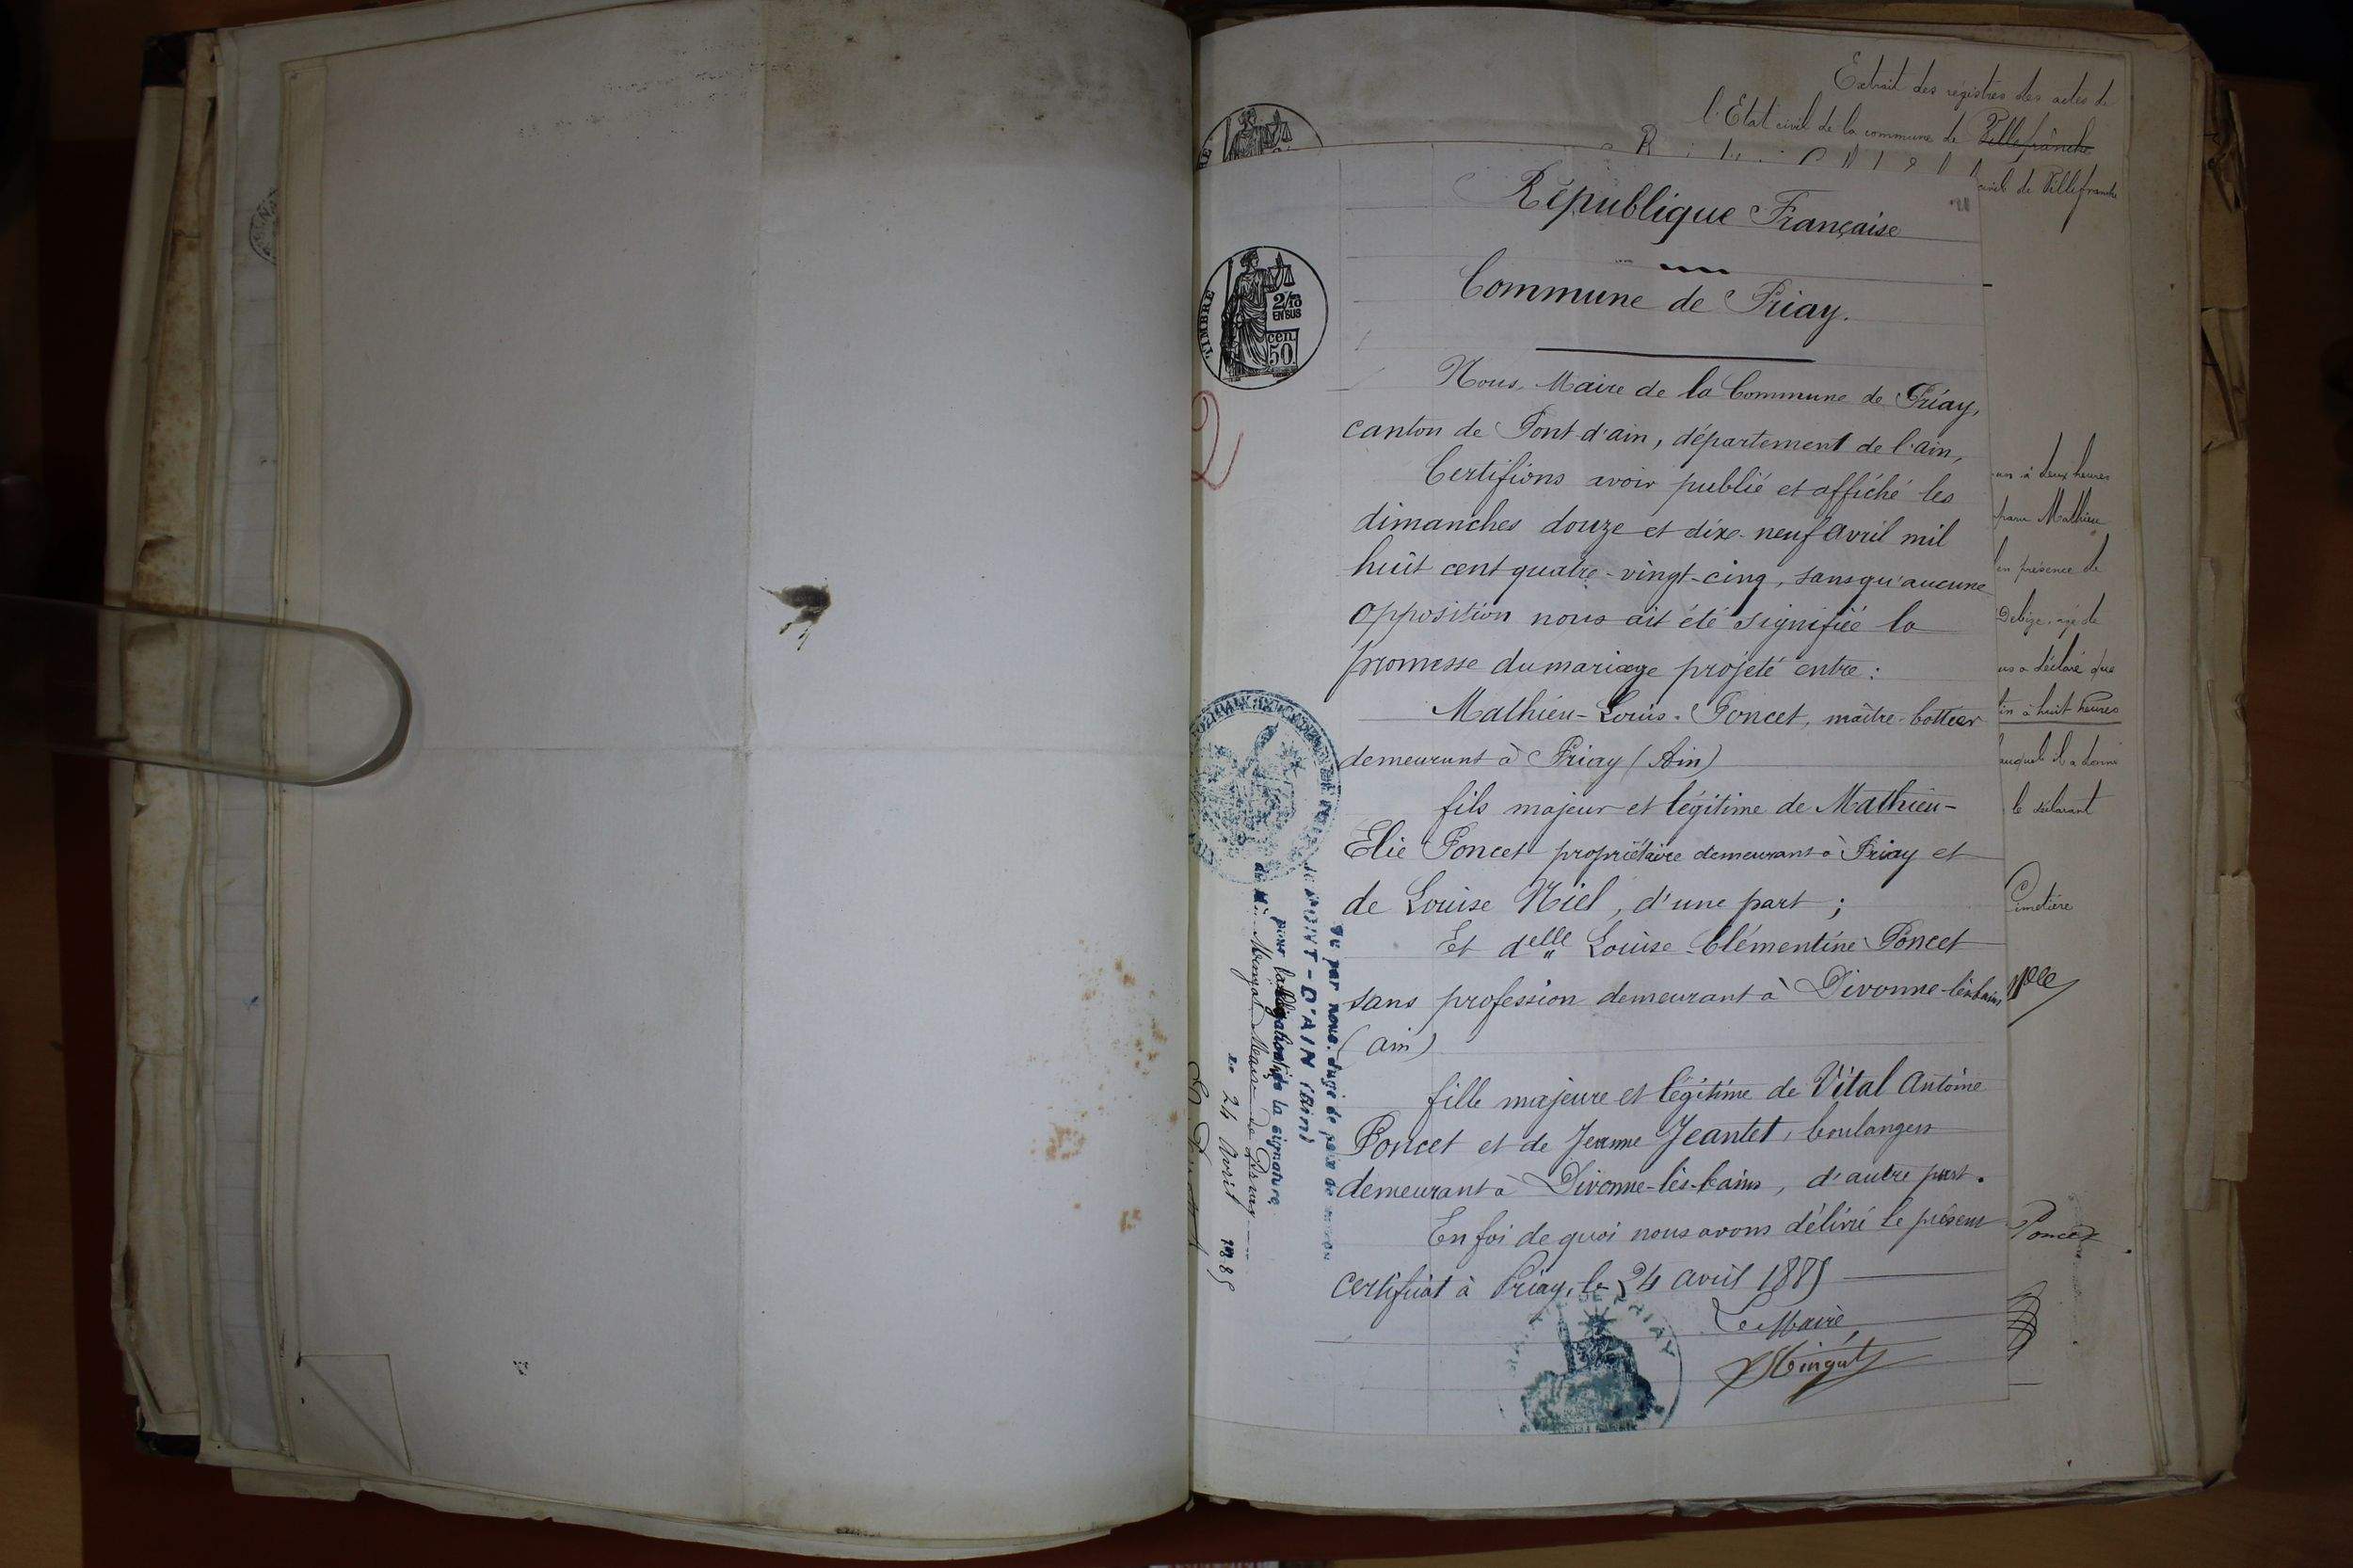 Extrait des registres des actes de
l'Etat civil de la commune de Villefranche
civil de Villefranche
République Française
Commune de Priay.
TIMBRE
2/10
EN SUS
cen.
50
2
Nous, Maire de la Commune de Priay,
canton de Pont-d'ain, département de l'ain,
Certifions avoir publié et affiché les
dimanches douze et dix-neuf avril mil
huit cent quatre-vingt-cinq, sans qu'aucune
opposition nous ait été signifiée la
promesse du mariage projeté entre :
Mathieu-Louis Poncet, maître-bottier
demeurant à Priay (Ain)
fils majeur et légitime de Mathieu-
Elie Poncet propriétaire demeurant à Priay et
de Louise Niel, d'une part ;
Et delle Louise Clémentine Poncet
sans profession demeurant à Divonne-les-bains
(ain)
fille majeure et légitime de Vital Antoine
Poncet et de Jeanne Jeantet, boulangers
demeurant à Divonne-lès-bains, d'autre part.
En foi de quoi nous avons délivré le présent
certificat à Priay, le 24 avril 1885
Le Maire,
Vu par nous, Juge de paix de
PONT-D'AIN (Ain)
pour la légalisation de la signature
de Mr Maire de Priay
Le 24 Avril 1885
à deux heures
Mathieu
en présence de
Debize, agé de
a déclaré que
à huit heures
auquel il a donné
le déclarant
Cimetière
Poncet